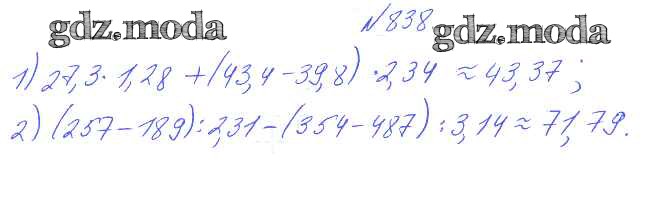 gdz.moda №838 gdz.moda
1) 27,3 · 1,28 + (43,4 - 39,8) · 2,34 ≈ 43,37 ;
2) (257 - 189) : 2,31 - (354 - 487) : 3,14 ≈ 71,79.